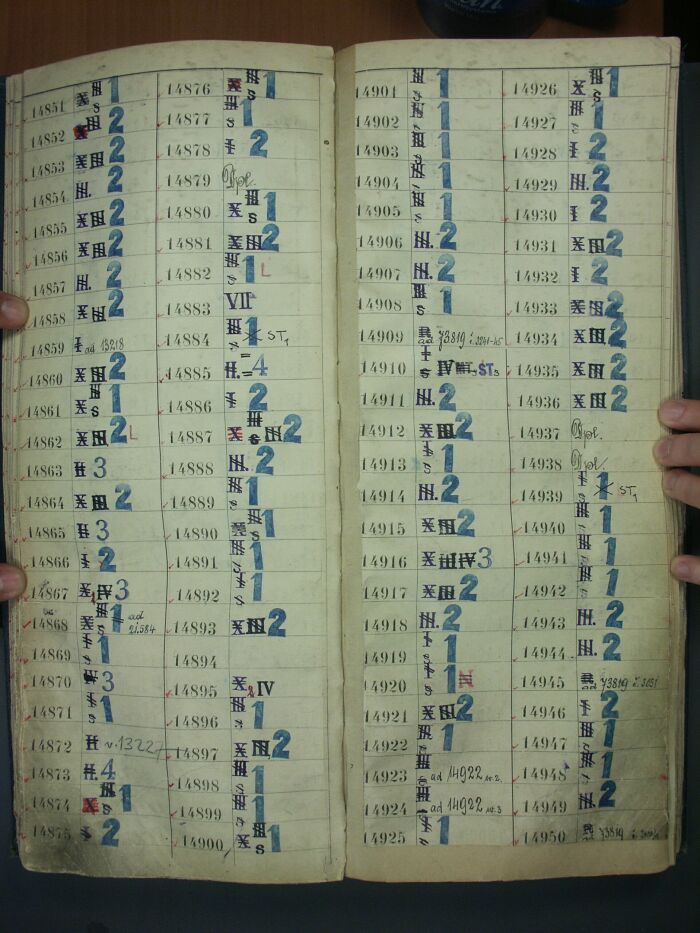 14851 X III S 1
14852 X III 2
14853 X III 2
14854 III. 2
14855 X III 2
14856 X III 2
14857 III. 2
14858 X III 2
14859 I ad 13218
14860 X III 2
14861 X III S 1
14862 X III 2 L
14863 II 3
14864 X III 2
14865 II 3
14866 I 2
14867 X IV 3
14868 X III S 1 ad 21.584
14869 I S 1
14870 3
14871 I S 1
14872 II v. 13227
14873 II. 4
14874 X III S 1
14875 I 2
14876 X III S 1
14877 III S 1
14878 I 2
14879 Dpl.
14880 X III S 1
14881 X III 2
14882 III S 1 L
14883 VII
14884 III S 1 X ST1
14885 II. = 4
14886 I 2
14887 X III S III 2
14888 III. 2
14889 III S 1
14890 III S 1
14891 III S 1
14892 I S 1
14893 X III 2
14894
14895 X IV
14896 I S 1
14897 X III 2
14898 III S 1
14899 III S 1
14900 X III S 1
14901 III S 1
14902 III S 1
14903 III S 1
14904 III S 1
14905 III S 1
14906 III. 2
14907 III. 2
14908 III S 1
14909 ad 73819
14910 I S IV ST3
14911 III. 2
14912 X III 2
14913 I S 1
14914 III. 2
14915 X III 2
14916 X III IV 3
14917 X III 2
14918 III. 2
14919 I S 1
14920 I S 1
14921 X III 2
14922 III S 1
14923 III ad 14922 nr. 2
14924 III ad 14922 nr. 3
14925 I S 1
14926 X III S 1
14927 III S 1
14928 I 2
14929 III. 2
14930 I 2
14931 X III 2
14932 I 2
14933 X III 2
14934 X III 2
14935 X III 2
14936 X III 2
14937 Dpl.
14938 Dpl.
14939 I S 1 X ST1
14940 III S 1
14941 III S 1
14942 III S 1
14943 III. 2
14944 III. 2
14945 ad 73819
14946 I 2
14947 III S 1
14948 I S 1
14949 III. 2
14950 73819